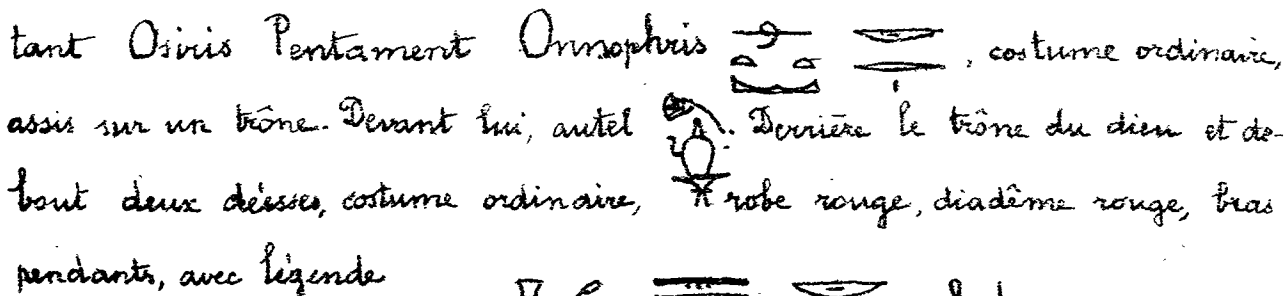 tant Osiris Pentament Onnophris , costume ordinaire,
assis sur un trône. Devant lui, autel . Derrière le trône du dieu et de-
bout deux déesses, costume ordinaire, robe rouge, diadême rouge, bras
pendants, avec légende